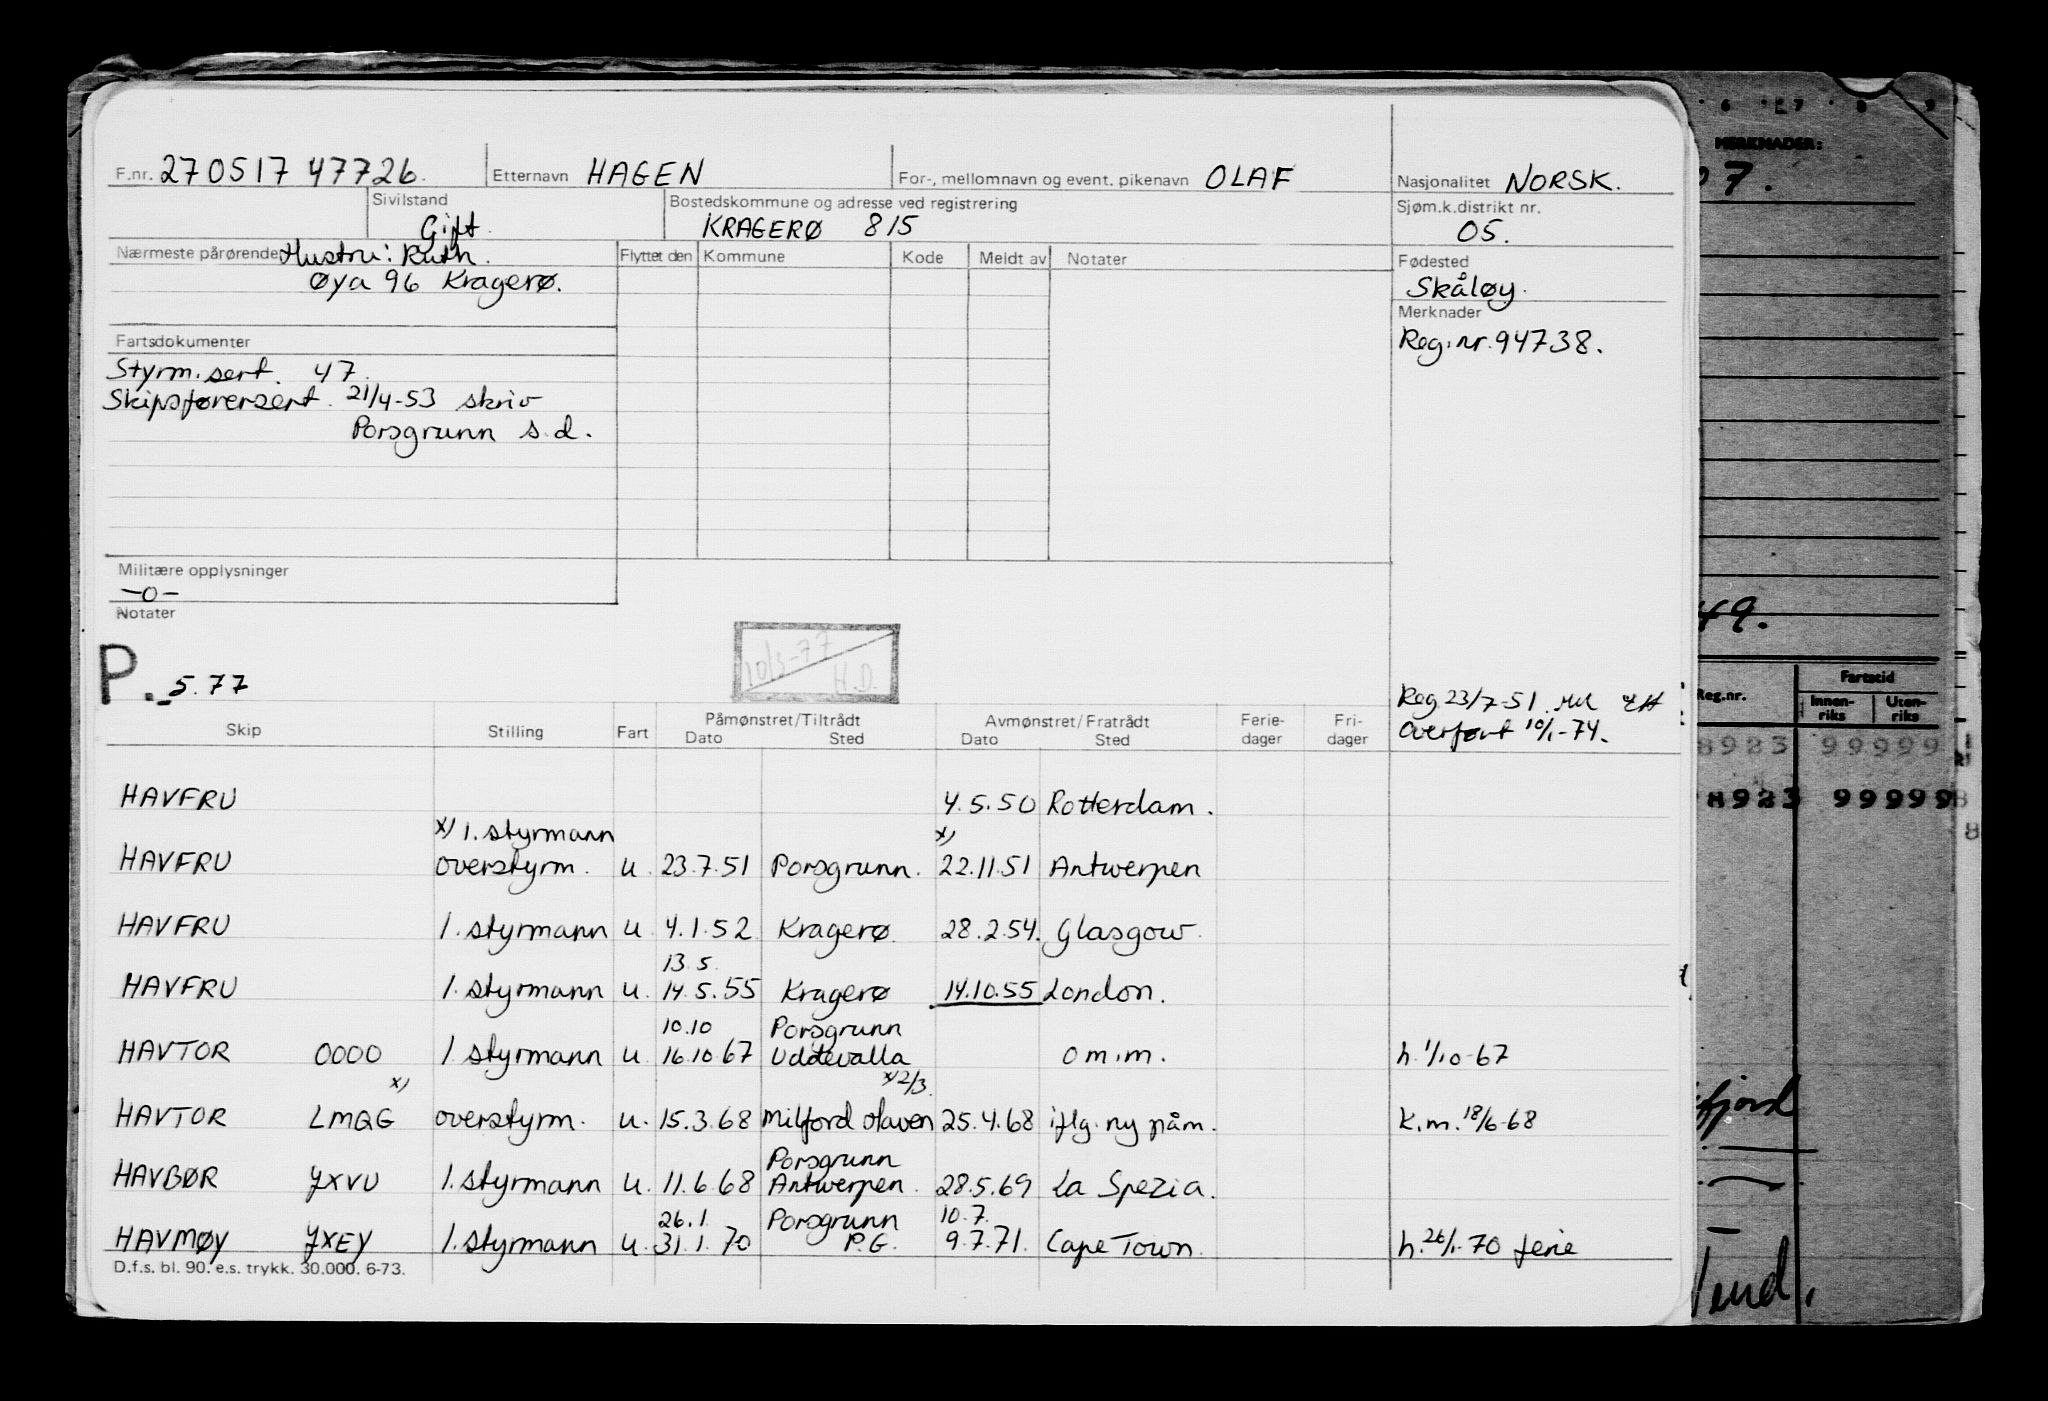 F.nr. 270517 47726. Etternavn HAGEN For-, mellomnavn og event. pikenavn OLAF Nasjonalitet NORSK.
Sivilstand Gift. Bostedskommune og adresse ved registrering KRAGERØ 815 Sjøm.k.distrikt nr. 05.
Nærmeste pårørende Hustru: Ruth.
Øya 96 Kragerø.
Flyttet den Kommune Kode Meldt av Notater
Fødested
Skåløy.
Merknader
Reg.nr. 94738.
Fartsdokumenter
Styrm.sert. 47.
Skipsførersert. 21/4-53 skriv
Porsgrunn s.d.
Militære opplysninger
-0-
Notater
10/3-77
H.D.
P. 5.77
Reg 23/7-51
Overført 10/1-74.
Skip Stilling Fart Påmønstret/Tiltrådt Dato Sted Avmønstret/Fratrådt Dato Sted Ferie-dager Fri-dager
HAVFRU 4.5.50 Rotterdam.
x) 1. styrmann x)
HAVFRU overstyrm. u. 23.7.51 Porsgrunn. 22.11.51 Antwerpen
HAVFRU 1. styrmann u. 4.1.52 Kragerø. 28.2.54. Glasgow.
13.5.
HAVFRU 1. styrmann u. 14.5.55 Kragerø 14.10.55 London.
10.10 Porsgrunn
HAVTOR OOOO 1. styrmann u. 16.10.67 Uddevalla o m.m. h. 1/10-67
x) x) 2/3.
HAVTOR LMQG overstyrm. u. 15.3.68 Milford Haven 25.4.68 iflg. ny påm. K.m. 18/6-68
Porsgrunn
HAVBØR JXVU 1. styrmann u. 11.6.68 Antwerpen. 28.5.69 La Spezia.
26.1. Porsgrunn 10.7.
HAVMØY JXEY 1. styrmann u. 31.1.70 P.G. 9.7.71. Cape Town. h. 26/1-70 ferie
D.f.s. bl. 90. e.s. trykk. 30.000. 6-73.
6 7 8 9
MERKNADER:
7.
49.
Reg.nr. Fartstid
Innen-riks Uten-riks
8923 99999
8923 99999
8
fjord